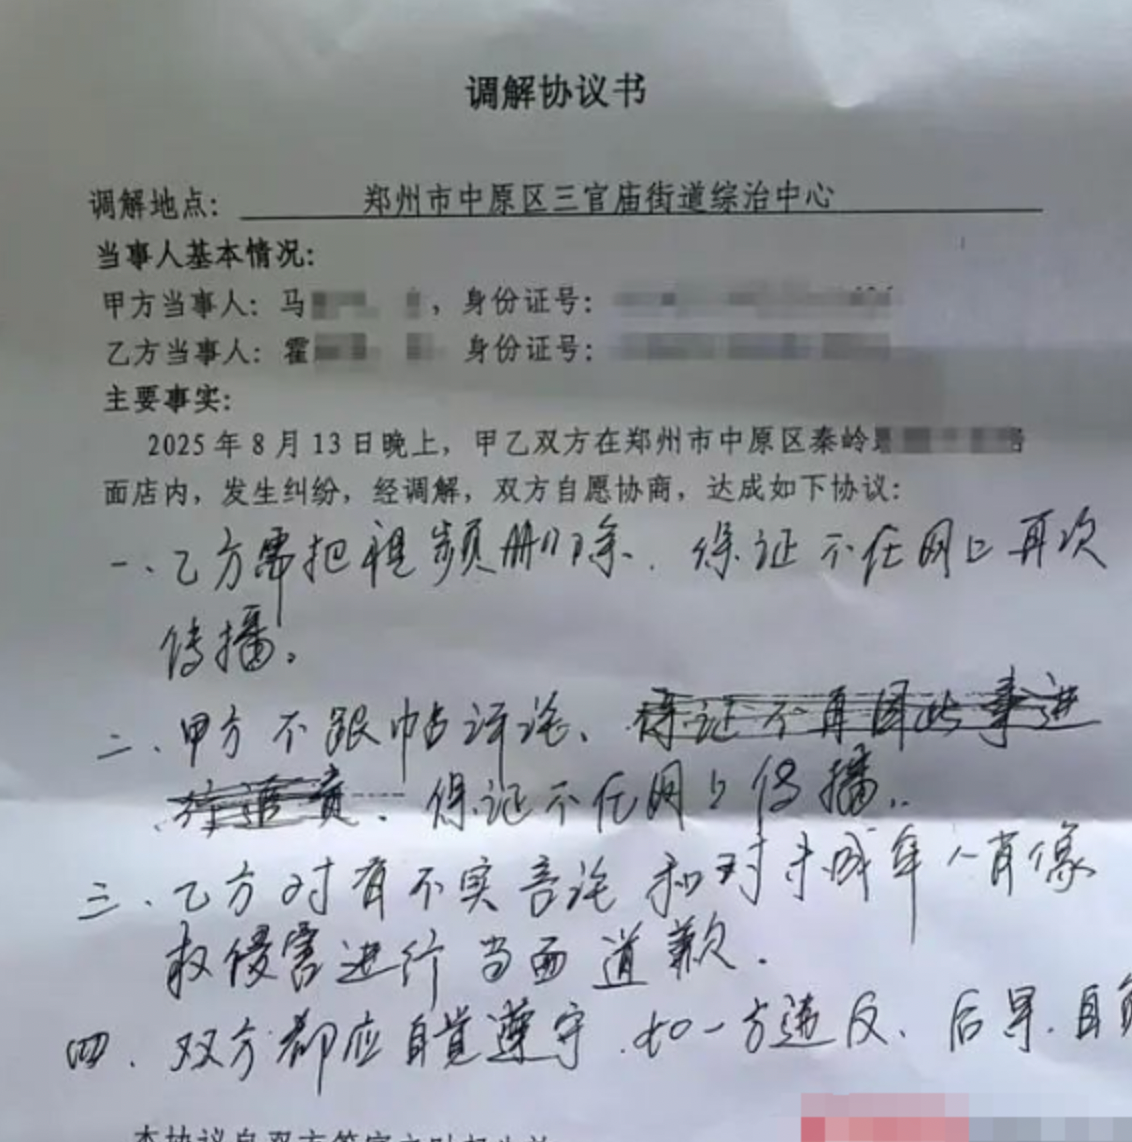 调解协议书
调解地点： 郑州市中原区三官庙街道综治中心
当事人基本情况：
甲方当事人：马 ，身份证号：
乙方当事人：霍 身份证号：
主要事实：
2025年8月13日晚上，甲乙双方在郑州市中原区秦岭
面店内，发生纠纷，经调解，双方自愿协商，达成如下协议：
一、乙方需把视频删除、保证不在网上再次
传播。
二、甲方不跟帖评论、保证不再因此事进
行追责、保证不在网上传播。
三、乙方对有不实言论和对未成年人肖像
权侵害进行当面道歉.
四、双方都应自觉遵守.如一方违反、后果.自负